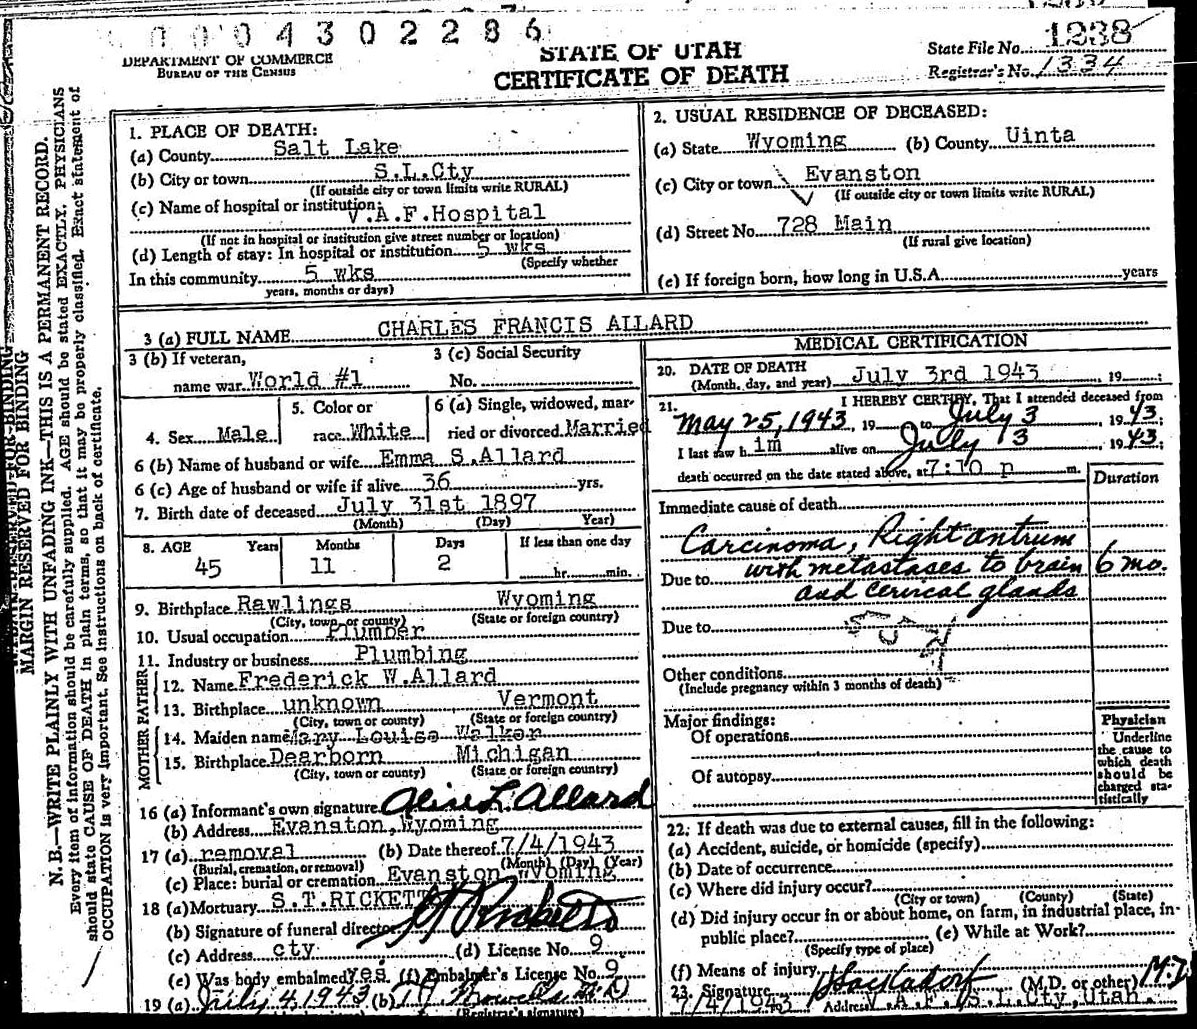 0 0 0 4 3 0 2 2 8 6
DEPARTMENT OF COMMERCE
BUREAU OF THE CENSUS
STATE OF UTAH
CERTIFICATE OF DEATH
State File No. 1238
Registrar's No. 1334
MARGIN RESERVED FOR BINDING
N. B.—WRITE PLAINLY WITH UNFADING INK—THIS IS A PERMANENT RECORD.
Every item of information should be carefully supplied. AGE should be stated EXACTLY. PHYSICIANS
should state CAUSE OF DEATH in plain terms, so that it may be properly classified. Exact statement of
OCCUPATION is very important. See instructions on back of certificate.
1. PLACE OF DEATH:
(a) County Salt Lake
(b) City or town S.L.Cty
(If outside city or town limits write RURAL)
(c) Name of hospital or institution:
V.A.F.Hospital
(If not in hospital or institution give street number or location)
(d) Length of stay: In hospital or institution 5 wks
(Specify whether
In this community 5 wks
years, months or days)
2. USUAL RESIDENCE OF DECEASED:
(a) State Wyoming (b) County Uinta
(c) City or town Evanston
(If outside city or town limits write RURAL)
(d) Street No. 728 Main
(If rural give location)
(e) If foreign born, how long in U.S.A. years
3 (a) FULL NAME CHARLES FRANCIS ALLARD
3 (b) If veteran,
name war World #1
3 (c) Social Security
No.
4. Sex Male
5. Color or
race White
6 (a) Single, widowed, mar-
ried or divorced Married
6 (b) Name of husband or wife Emma S.Allard
6 (c) Age of husband or wife if alive 36 yrs.
7. Birth date of deceased July 31st 1897
(Month) (Day) Year)
8. AGE Years Months Days If less than one day
45 11 2 hr. min.
9. Birthplace Rawlings Wyoming
(City, town, or county) (State or foreign country)
10. Usual occupation Plumber
11. Industry or business Plumbing
FATHER
12. Name Frederick W.Allard
13. Birthplace unknown Vermont
(City, town or county) (State or foreign country)
MOTHER
14. Maiden name Mary Louise Walker
15. Birthplace Dearborn Michigan
(City, town or county) (State or foreign country)
16 (a) Informant's own signature Allard
(b) Address Evanston,Wyoming
17 (a) removal (b) Date thereof 7/4/1943
(Burial, cremation, or removal) (Month) (Day) (Year)
(c) Place: burial or cremation Evanston Wyoming
18 (a) Mortuary S.T.RICKETT
(b) Signature of funeral director Ricketts
(c) Address cty (d) License No. 9
(e) Was body embalmed yes (f) Embalmer's License No. 9
19 (a) July 4 1943 (b)
(Registrar's signature)
MEDICAL CERTIFICATION
20. DATE OF DEATH
(Month, day, and year) July 3rd 1943, 19 ;
21. I HEREBY CERTIFY, That I attended deceased from
May 25, 1943, 19 to July 3 1943.
I last saw h im alive on July 3 1943
death occurred on the date stated above, at 7:10 p m.
Duration
Immediate cause of death
Carcinoma, Right antrum
Due to with metastases to brain 6 mo.
and cervical glands
Due to
Other conditions
(Include pregnancy within 3 months of death)
Major findings:
Of operations
Of autopsy
Physician
Underline
the cause to
which death
should be
charged sta-
tistically
22. If death was due to external causes, fill in the following:
(a) Accident, suicide, or homicide (specify)
(b) Date of occurrence
(c) Where did injury occur?
(City or town) (County) (State)
(d) Did injury occur in or about home, on farm, in industrial place, in
public place? (e) While at Work?
(Specify type of place)
(f) Means of injury
23. Signature (M.D. or other) M.D
7/4/1943 Address V.A.F. S.L.Cty,Utah.